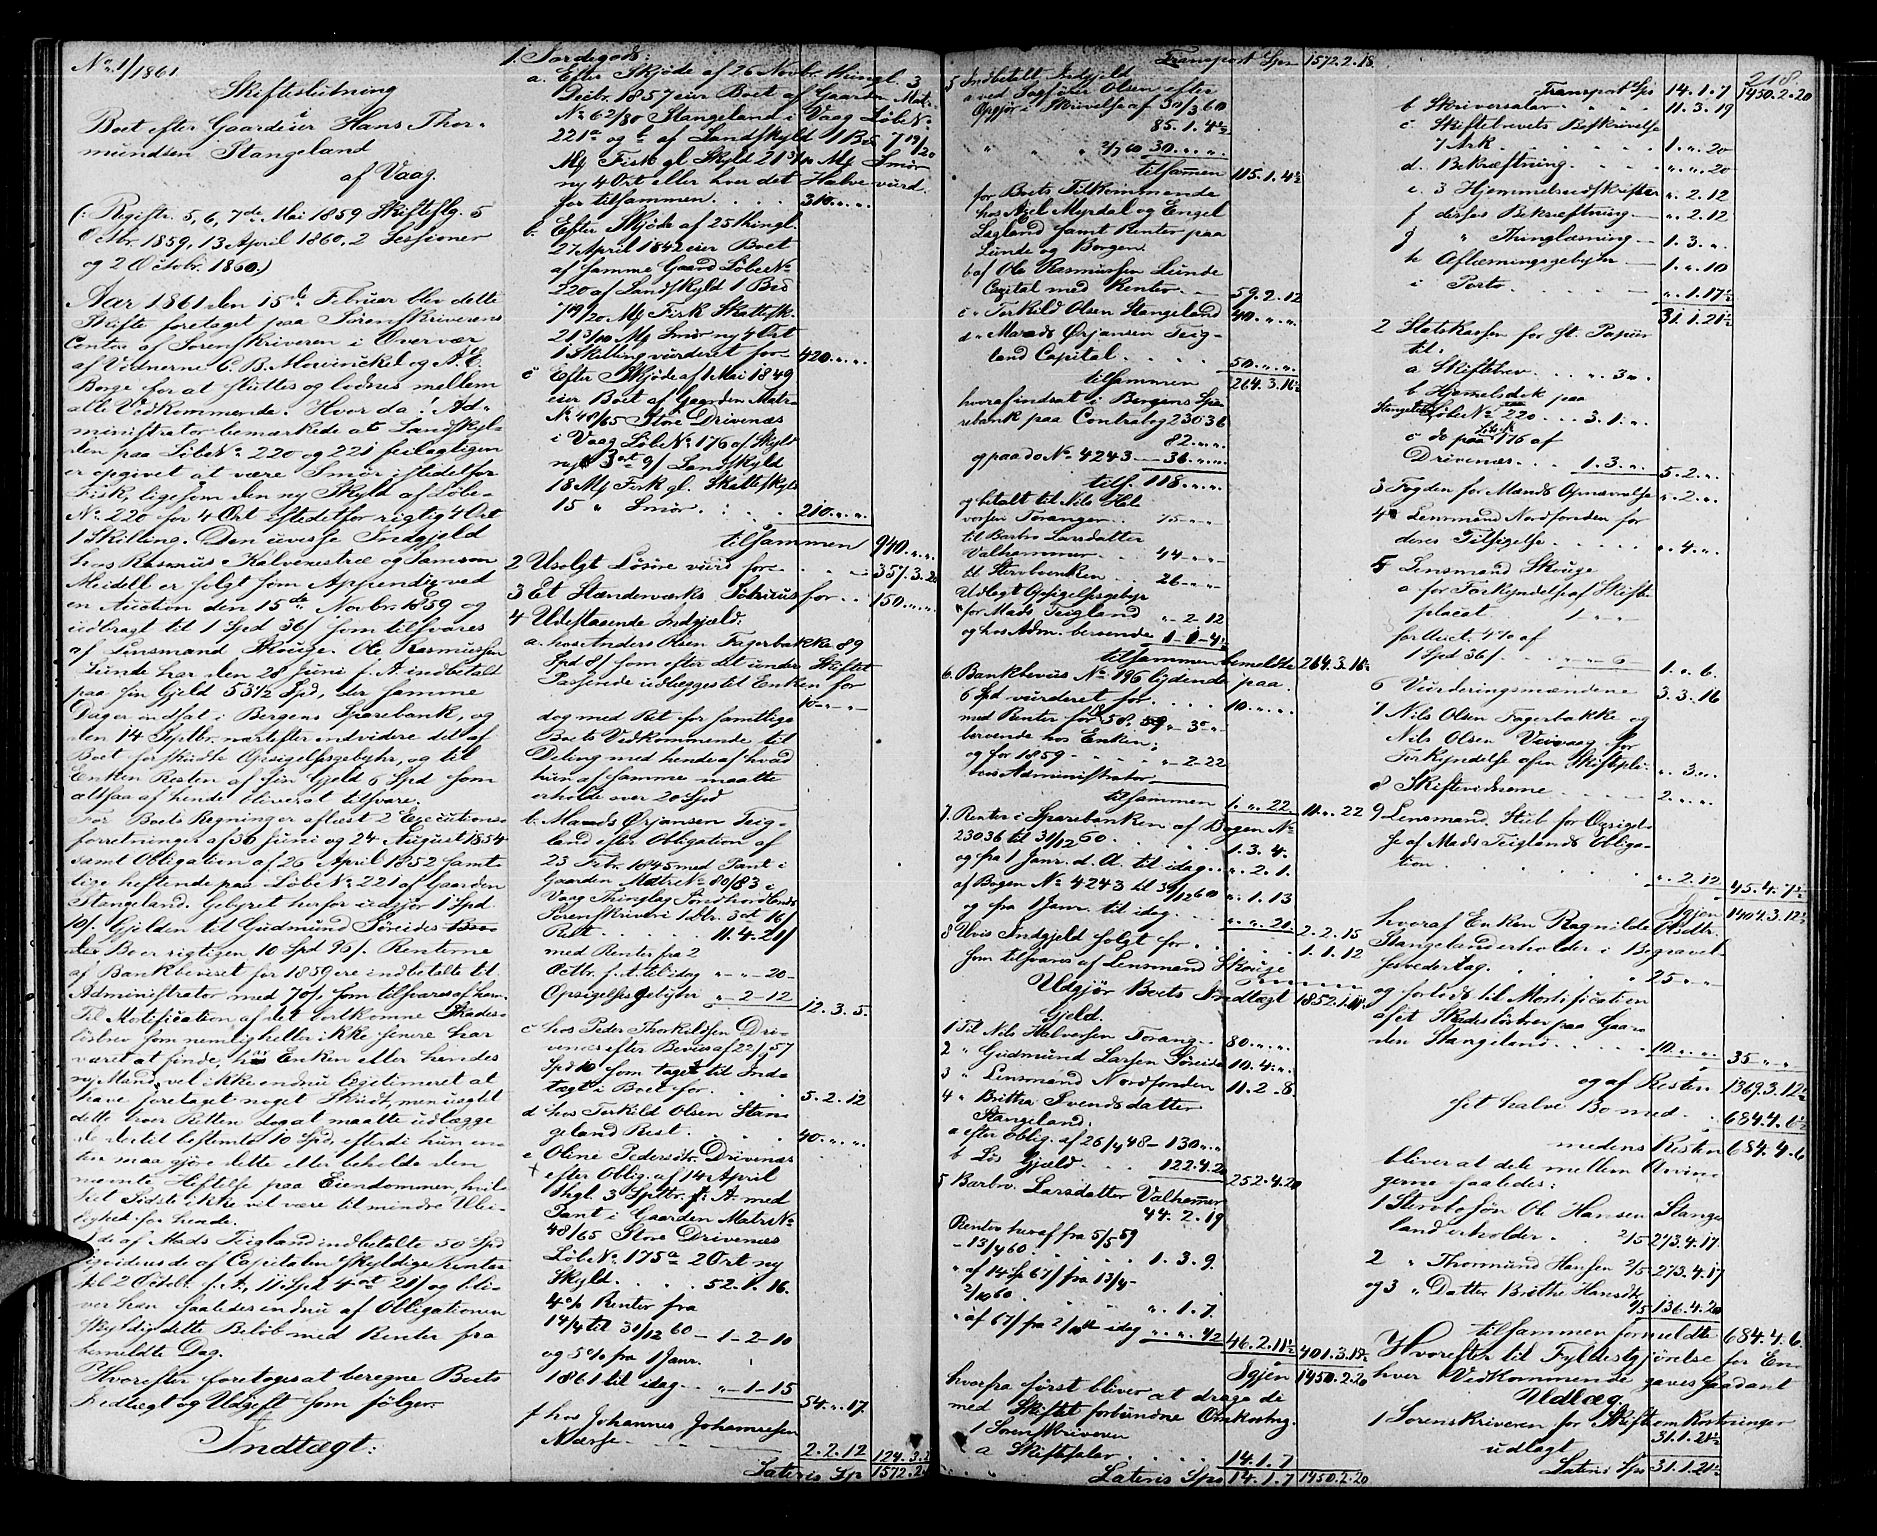 No. 1/1861
Skifteslutning
Boet efter Gaardeier Hans Thor-
mundsen Stangeland
af Vaag.
(: Registr. 5, 6, 7de Mai 1859 Skiftesslg. 5
Octbr. 1859, 13 April 1860, 2 Sessioner
og 2 Octobr. 1860.)
Aar 1861 den 15de Februar blev dette
Skifte foretaget paa Sorenskriverens
Contor af Sorenskriveren i Overvær
af Vidnerne C. B. Mowinckel og A. E.
Borge for at sluttes og loddes mellem
alle Vedkommende. Hvor da: Ad-
ministrator bemærkede at Landskyl-
den paa Løbe No. 220 og 221 feilagtigen
er opgivet at være Smør istedetfor
Fisk, ligesom den ny Skyld af Løbe-
No. 220 for 4 Ort istedetfor rigtig 4 Ort
1 Skilling. Den uvisse Indgjeld
hos Rasmus Kalvenestræ og Samson
Meidell er solgt som Appendix ved
en Auction den 15de Novbr. 1859 og
udbragt til 1 Spd 36 s. som tilsvares
af Lensmand Skouge. Ole Rasmussen
Lunde har den 28 Juni f. A. indbetalt
paa sin Gjeld 53½ Spd, der samme
Dag er indsat i Bergens Sparebank, og
den 14 Septbr. næstefter endvidere det af
Boet forskudte Opsigelsesgebyhr, og til
Enken Resten af sin Gjeld 6 Spd som
altsaa af hende bliver at tilsvare.
For Boets Regning er aflæst 2 Executions-
forretninger af 30 Juni og 24 August 1854
samt Obligation af 26 April 1852 samt-
lige heftende paa Løbe No. 221 af Gaarden
Stangeland. Gebyret herfor udgjør 1 Spd
10 s. Gjelden til Gudmund Søreide
er rigtigen 10 Spd 96 s. Renterne
af Bankbeviset for 1859 ere indbetalte til
Administrator med 70 s. som tilsvares af ham.
Til Mortification af det bortkomne Skades-
løsbrev som nemlig heller ikke senere har
været at finde, har Enken eller hendes
ny Mand vel ikke endnu legitimeret at
have foretaget noget Skridt, men uagtet
dette troer Retten dog at maatte udlægge
de dertil bestemte 10 Spd, efterdi hun en-
ten maa gjøre dette eller beholde den
nævnte Heftelse paa Eiendommen, hvil-
ket Sidste ikke vil være til mindre Ulei-
lighed for hende.
I de af Mads Teigland indbetalte 50 Spd
af Capitalen skyldige Renter
til 2 Octobr. f. A., 11 Spd 4 ort 21 s. og bli-
ver han saaledes endnu af Obligationen
skyldig dette Beløb med Renter fra
bemeldte Dag.
Hvorefter foretoges at beregne Boets
Indtægt og Udgift som følger.
Indtægt:
1. Jordegods:
a. Efter Skjøde af 26 Novbr. thingl. 3
Decbr. 1857 eier Boet af Gaarden Matr.
No. 62/80 Stangeland i Vaag Løbe No.
221a og b af Landskyld 1 Bsd 7 19/20
Mk Fisk gl. Skyld 21 3/10 Mk Smør
ny 4 Ort eller hver det Halve vurd.
for tilsammen . . . 310. „ „
b. Efter Skjøde af 25 thingl.
27 April 1842 eier Boet
af samme Gaard Løbe No.
220 af Landskyld 1 Bsd
7 19/20 Mk Fisk Skattesk.
21 3/10 Mk Smør ny 4 Ort
1 Skilling vurderet for 420. „ „
c Efter Skjøde af 1 Mai 1849
eier Boet af Gaarden Matr.
No. 48/65 Store Drivenæs
i Vaag Løbe No. 176 af Skyld
ny 3 ort 9 s. Landskyld
18 Mk Fisk gl. Skatteskyld
15 „ Smør . . . 210. „ „
tilsammen 940. „ „
2 Usolgt Løsøre vurd for . . 357. 3. 20
3 Et Stænderværks for . . 150. „ „
4 Udestaaende Indgjæld:
a. hos Anders Olsen Fagerbakke 89
Spd 8 s. som efter det under Skiftet
Passerede udlægges til Enken for
10 „ „
dog med Ret for samtlige
Boets Vedkommende til
Deling med hende af hvad
hun af samme maatte
erholde over 20 Spd
b. Mads Ørjansen Teig-
land efter Obligation af
23 Febr. 1845 med Pant i
Gaarden Matr No. 80/83 i
Vaag Thinglag Søndhordlands
Sorenskriveri 1 blr. 3 ort 16 s.
Rest . . . 11. 4. 21 s.
med Renter fra 2
Octbr. f. A. til idag „ „ 20
Opsigelsesgebyhr „ 2 12
12. 3. 5.
c hos Peder Thorkildsen Dri-
venæs efter Bevis af 22/9 57
Spd 10 som taget til Ind-
tægt i Boet for . . . 5. 2. 12
d hos Torkild Olsen Stan-
geland Rest . . . 40. „ „
e Oline Pedersdtr. Drivenæs
efter Oblig. af 14 April
thgl. 3 Septbr. f. A. med
Pant i Gaarden Matr No.
48/65 Store Drivenæs
Løbe No. 175a 2 Ort ny
Skyld . . . 52. 1. 16.
4% Renter fra
14/4 til 31/12 60 — 1 — 2 — 10
og 5% fra 1 Janr.
1861 til idag . . „ 1 — 15
54. „ 17.
f hos Johannes Johannessen
Nærsø . . . 2. 2. 12 124. 3. 2
Lateris Sp 1572. 2. 18
Transport Sps 1572. 2. 18
5 Indbetalt Indgjeld
a ved Sagfører Olsen efter
Opgjør i Skrivelse af 30/3 60
85. 1. 4½
„ „ „ 2/7 60 30. „ „
tilsammen 115. 1. 4½
for Boets Tilkommende
hos Axel Myrdal og Engel
Lagland samt Renter paa
Lunde og Borgen.
b af Ole Rasmussen Lunde
Capital med Renter . 59. 2. 12
c „ Torkild Olsen Stangeland 40. „ „
d „ Mads Ørjansen Teig-
land Capital . . . 50. „ „
tilsammen 264. 3. 16½
hvoraf indsat i Bergens Spa-
rebank paa Contrabog 23036
82. „ „
og paa do No. 4243 — 36. „ „
tils. 118. „ „
og betalt til Nils Hal-
vorsen Toranger . . 75 „ „
til Barbro Larsdatter
Valhammer . . 44 „ „
til Stervboenken . . 26 „ „
Udlagt Opsigelsesgebyr
for Mads Teigland „ 2 12
og hos Adm. beroende 1 — 1 — 4½
tilsammen bemeldte 264. 3. 16½
6. Bankbevis No. 196 lydende paa
6 Spd vurderet for . . . 10. „ „
med Renter for 1858 „ 3 „
beroende hos Enken;
og for 1859 . . . „ 2 22
hos Administrator
tilsammen 1. „ 22. 11. „ 22
7. Renter i Sparebanken af Bogen No.
23036 til 31/12 60 . . . 1. 3. 4.
og fra 1 Janr. d. A. til idag . . „ 2. 1.
af Bogen No. 4243 til 31/12 60 „ 1. 13
og fra 1 Janr. til idag . . . „ „ 21. 2. 2. 15
8 Uvis Indgjeld solgt for . . . 1. 1. 12
som tilsvares af Lensmand Skouge
Udgjør Boets Indtægt 1852. 1. 11½
Gjeld.
1 Til Nils Halvorsen Torang. 80. „ „
2 „ Gudmund Larsen Søreide 10. 4. „
3 „ Lensmand Nordfonden 11. 2. 8.
4 „ Britha Svendsdatter
Stangeland:
a efter Oblig. af 26/4 48 — 130. „ „
b Løs Gjæld . . . 122. 4. 20 252. 4. 20
5 Barbro Larsdatter Valhamer
44. 2. 19
Renter heraf fra 5/5 59
— 13/4 60 . . . 1. 3. 9.
„ af 14 Sp 67 s. fra 13/4 —
2/10 60 . . . „ 1. 7.
„ af 67 s. fra 2/10 til idag „ „ ½ 46. 2. 11½ 401. 3. 15½
Igjen 1450. 2. 20
hvorfra først bliver at drage de
med Skiftet forbundne Omkostng.
1 Sorenskriveren
a Skiftesaler . . . 14. 1. 7
Lateris Sps 14. 1. 7 1450. 2. 20
218.
Transport Sps 14. 1. 7 1450. 2. 20
b Skriversaler . . . 11. 3. 19
c Skiftebrevets Beskrivelse
7 Ark . . . 1. „ 20
d. Bekræftning . . . „ „ 20
e. 3 Hjemmelsudskrifter „ 2. 12
f disses Bekræftning — „ 2. 12
g „ Thinglæsning — 1. 3. „
h Aflæsningsgebyhr — 1. „ 10
i Porto . . . „ 1. 17½
31. 1. 21½
2 Statskassen for st. Papiir
til:
a Skiftebrev . . . „ 3 „
b Hjemelsdok paa
Stangeland Løbe No. 220 . . 3. 1. „
c do paa Løbe No 176 af
Drivenæs . . 1. 3. „ 5. 2. „
3 Fogden for Mænds Opnævnelse „ 2. „
4 Lensmand Nordfonden for
deres Tilsigelse . . . „ 4. „
5 Lensmand Skouge
a for Forkyndelse af Skifte-
placat . . . 1 „ „
for Auct. 4% af
1 Spd 36 s. . . „ „ 6 1. „ 6.
6 Vurderingsmændene 3. 3. 16
7 Nils Olsen Fagerbakke og
Nils Olsen Veivaag for
Forkyndelse af en Skiftepl. „ 3. „
8 Skiftevidnerne . . . 2. „ „
9 Lensmand Stub for Opsigel-
se af Mads Teiglands Obliga-
tion . . . „ 2. 12 45. 4. 7½
Igjen 1404. 3. 12½
hvoraf Enken Ragnilde Gudtr.
Stangeland erholder i Begravel-
sesvederlag . . . 25 „ „
og forlods til Mortification
af et Skadesløsbrev paa Gaar-
den Stangeland . . . 10. „ „ 35 „ „
og af Resten 1369. 3. 12½
sit halve Bo med . . 684. 4. 6½
medens Resten 684. 4. 6
bliver at dele mellem Arvin-
gerne saaledes:
1 Stervbosøn Ole Hansen Stange-
land erholder . . 2/5 273. 4. 17.
2 „ Thormund Hansen 2/5 273. 4. 17
og 3 „ Datter Brithe Hansdtr.
1/5 136. 4. 20
tilsammen formeldte 684. 4. 6
Hvorefter til Fyldestgjørelse for En-
hver Vedkommende gaves saadant
Udlæg.
1 Sorenskriveren for Skifteomkostninger
udlagt 31. 1. 21½
Lateris Sps 31. 1. 21½